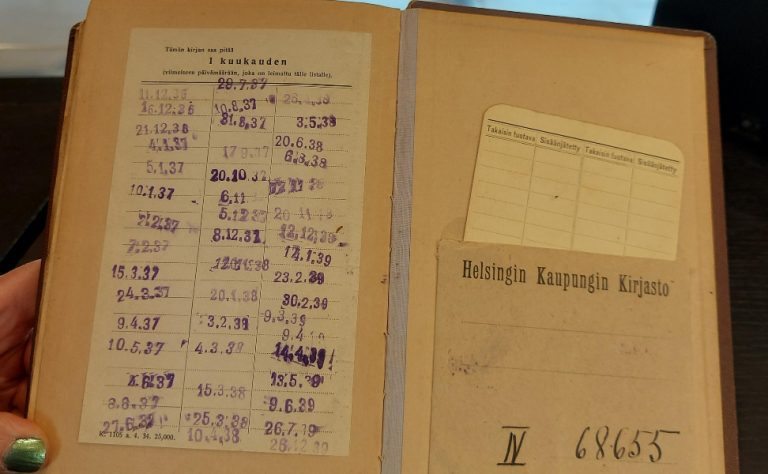 Tämän kirjan saa pitää
1 kuukauden
(viimeiseen päivämäärään, joka on leimattu tälle listalle).
11.12.36
16.12.36
21.12.36
4.1.37
5.1.37
10.1.37
2.2.37
7.2.37
15.3.37
24.3.37
9.4.37
10.5.37
4.6.37
8.8.37
27.6.37
29.7.37
10.8.37
31.8.37
17.9.37
20.10.37
6.11
5.12.37
8.12.37
20.1.38
3.2.39
4.3.39
15.3.38
25.3.38
10.4.38
3.5.39
20.6.38
6.8.38
12.12.39
14.1.39
23.2.39
30.2.39
9.3.39
9.4
14.4.39
13.5.39
9.6.39
26.7.39
28.12.39
K. 1105 a. 4. 34. 25,000.
Takaisin tuotava Sisäänjätetty Takaisin tuotava Sisäänjätetty
Helsingin Kaupungin Kirjasto
IV 68655